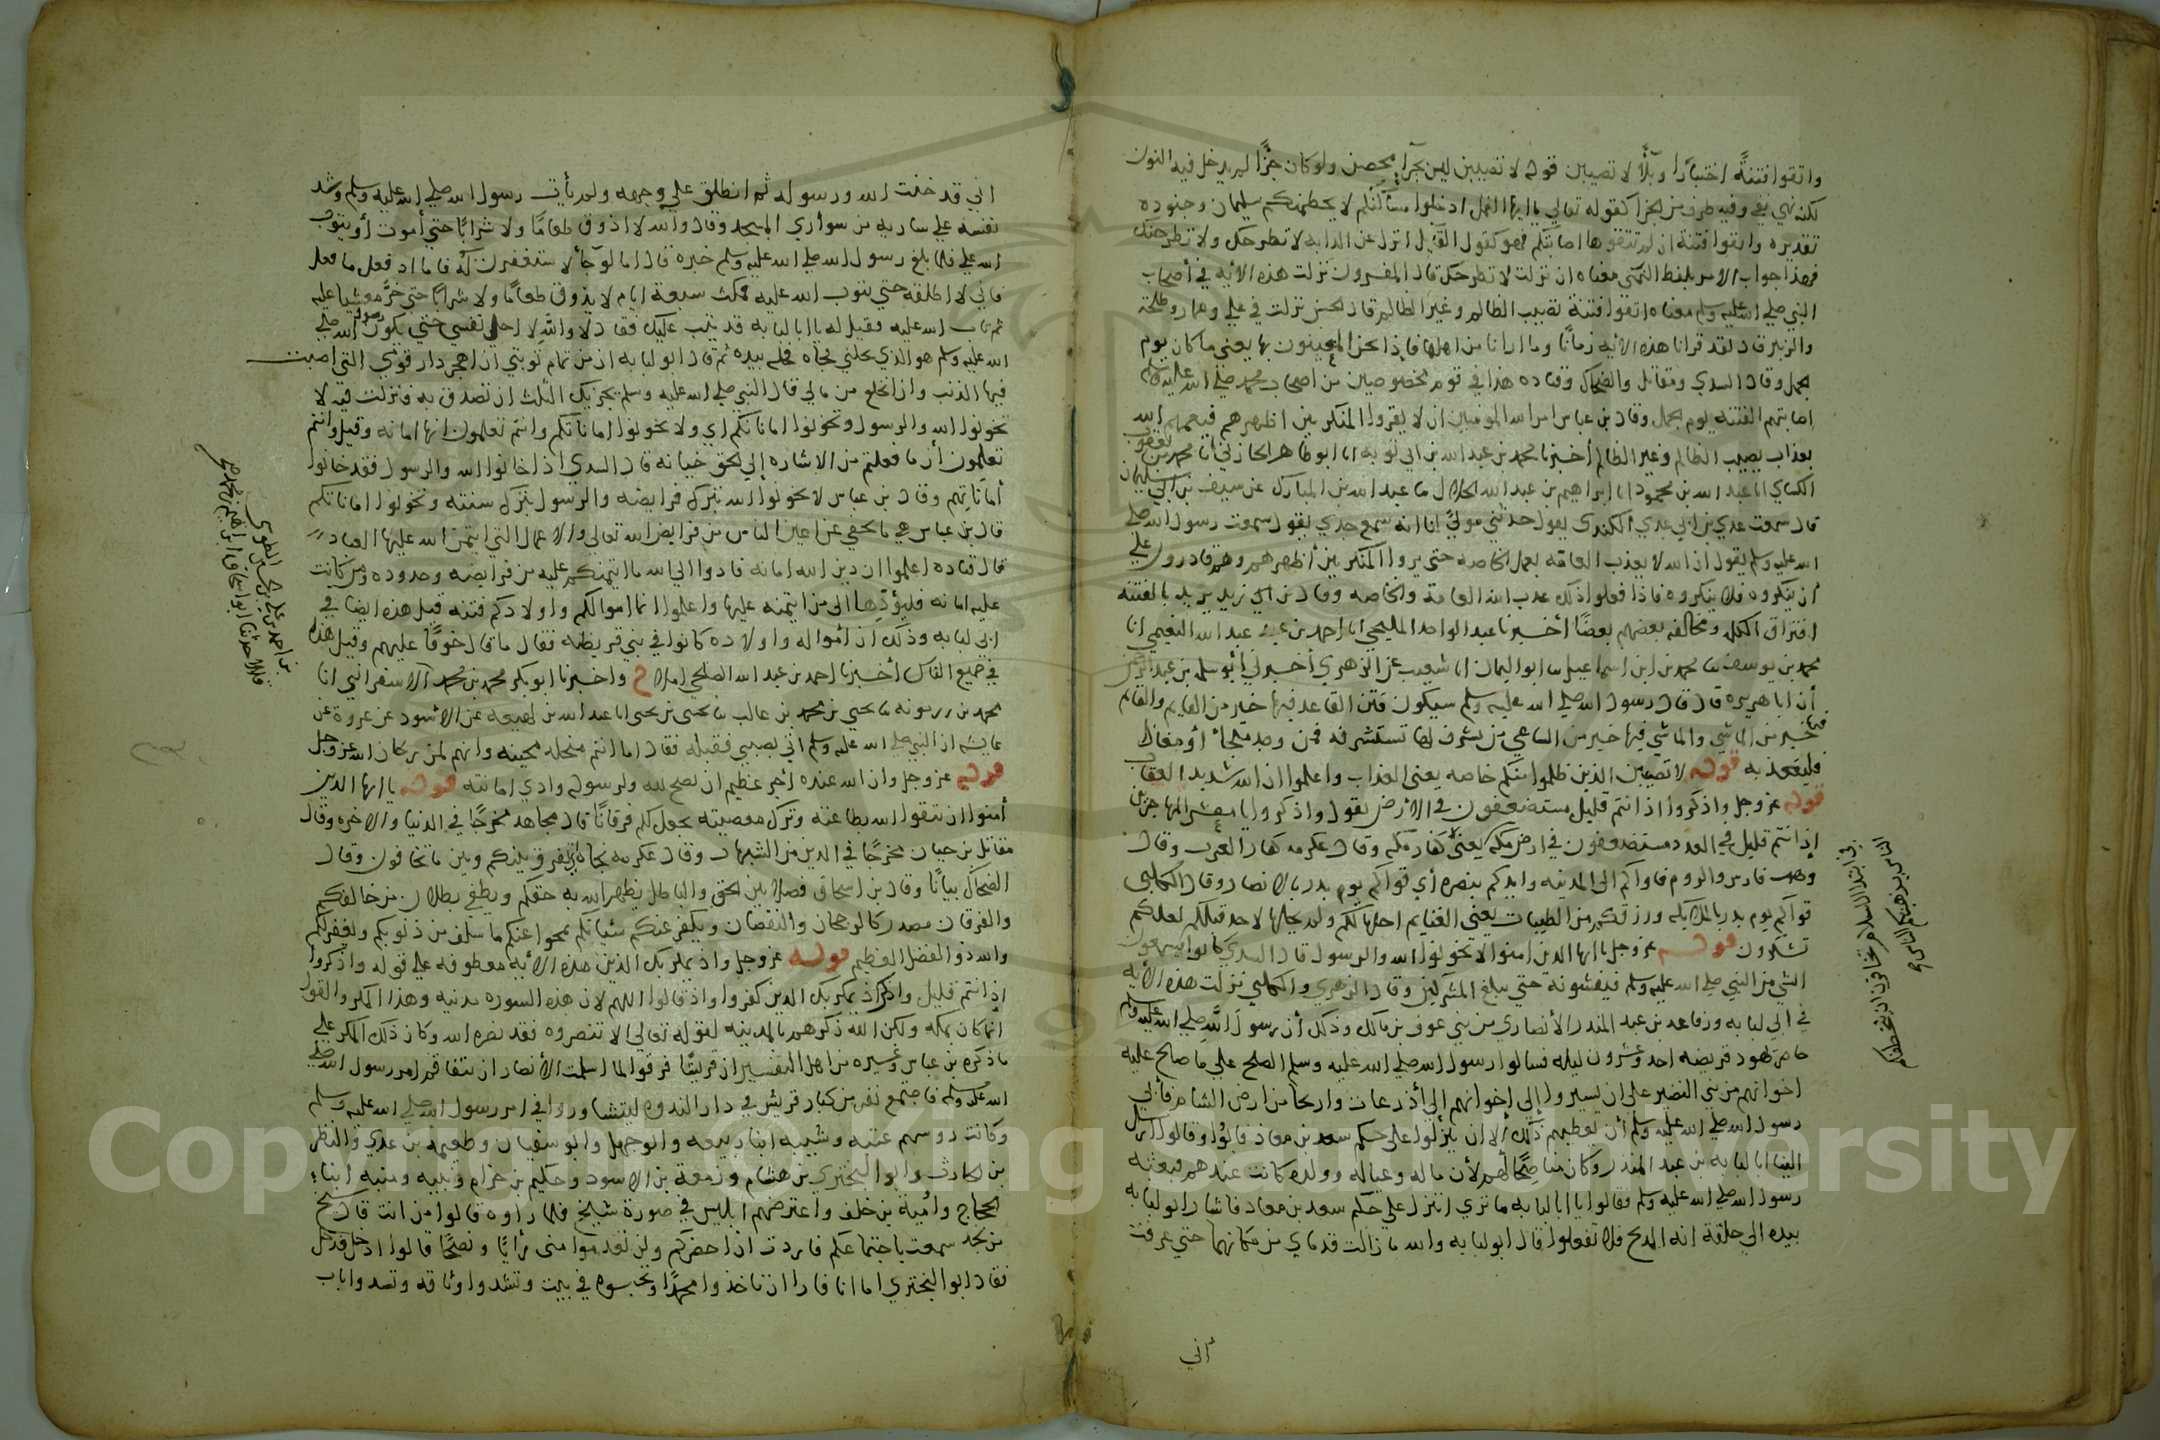 واتقوا فتنةً اختبارًا وبلاً لا تصيبن قوله لا تصيبن ليس بجزآ محض ولو كان جزًا لم يدخل فيه النون
لكنه نهي وفيه طرف من الجزا كقوله تعالى يا ايها النمل ادخلوا مساكنكم لا يحطمنكم سليمان وجنوده
تقديره واتقوا فتنة ان لم تتقوها اصابتكم فهو كقول القآيل انزل عن الدابه لا تطرحك ولا تطرحنك
فهذا جواب الامر بلفظ النهي معناه ان نزلت لا تطرحك قال المفسرون نزلت هذه الايه في أصحاب
النبي صلى الله عليه وسلم معناه اتقوا فتنة تصيب الظالم وغير الظالم قال الحسن نزلت في علي وعمار وطلحة
والزبير قال لقد قرانا هذه الايه زمانًا وما ارانا من اهلها فإذا نحن المعينون بها يعني ما كان يوم
الجمل وقال السدي ومقاتل والضحاك وقتاده هذا في قوم مخصوصين من اصحاب محمد صلى الله عليه وسلم
اصابتهم الفتنه يوم الجمل وقال بن عباس امر الله المومنين ان لا يقروا المنكر بين اظهرهم فيعمهم الله
بعذاب يصيب الظالم وغير الظالم أخبرنا محمد بن عبد الله بن ابي توبه انا ابو طاهر الحارثي انا محمد بن يعقوب
الكسائي انا عبد الله بن محمود انا ابراهيم بن عبد الله الخلال ثنا عبد الله بن المبارك عن سيف بن ابي سليمان
قال سمعت عدي بن ابي عدي الكندي يقول حدثني مولىً لنا انه سمع جدي يقول سمعت رسول الله صلى
الله عليه وسلم يقول ان الله لا يعذب العامه بعمل الخاصه حتى يروا المنكر بين أظهرهم وهم قادرون على
أن ينكروه فلا ينكروه فاذا فعلوا ذلك عذب الله العامة والخاصه وقال بن زيد يريد بالفتنة
افتراق الكلمه ومخالفه بعضهم بعضًا أخبرنا عبد الواحد المليحي انا احمد بن عبد الله النعيمي انا
محمد بن يوسف ثنا محمد بن اسماعيل ثنا ابو اليمان انا شعيب عن الزهري أخبرني ابو سلمه بن عبد الرحمن
أن ابا هريره قال قال رسول الله صلى الله عليه وسلم سيكون فتن القاعد فيها خير من القايم والقايم
فيها خير من الماشي والماشي فيها خير من الساعي من تشرف لها تستشرفه فمن وجد ملجأ أو معاذا
فليعذ به قوله لا تصيبن الذين ظلموا منكم خاصه يعني العذاب واعلموا ان الله شديد العقاب
قوله عز وجل واذكروا اذ انتم قليل مستضعفون في الارض يقول واذكروا يا معشر المهاجرين
إذ انتم قليل في العدد مستضعفون في ارض مكه يعني كفار مكه وقال عكرمه كفار العرب وقال
وهب فارس والروم فاواكم الى المدينه وايدكم بنصره أي قواكم يوم بدر بالانصار وقال الكلبي
قواكم يوم بدر بالملايكه ورزقكم من الطيبات يعني الغنايم احلها لكم ولم يحلها لاحد قبلكم لعلكم
تشكرون قوله عز وجل يا ايها الذين امنوا لا تخونوا الله والرسول قال السدي كانوا يسمعون
الشي من النبي صلى الله عليه وسلم فيفشونه حتي يبلغ المشركين وقال الزهري والكلبي نزلت هذه الأيه
في ابي لبابه بن عبد المنذر الأنصاري من بني عوف بن مالك وذلك أن رسول الله صلى الله عليه وسلم
حاصر يهود قريضه احد وعشرون ليله فسالوا رسول الله صلى الله عليه وسلم الصلح على ما صالح عليه
اخوانهم من بني النضير على ان يسيروا إلى إخوانهم إلى أذرعات واريحا من ارض الشام فأبى
رسول الله صلى الله عليه وسلم أن يعطيهم ذلك إلا ان ينزلوا على حكم سعد بن معاذ فابوا وقالوا ارسل
الينا ابا لبابه بن عبد المنذر وكان مناصحًا لهم لأن ماله وعياله وولده كانت عندهم فبعثه
رسول الله صلى الله عليه وسلم وقالوا يا ابا لبابه ما تري اننزل علي حكم سعد بن معاذ فاشار ابو لبابه
بيده الي حلقة انه الذبح فلا تفعلوا قال ابو لبابه والله ما زالت قدماي من مكانهما حتي عرفت
أني
الناس يذهبكم الناس
في ابتدا الاسلام تخافون ان يتخطفكم
اني قد خنت الله ورسوله ثم انطلق على وجهه ولم يأت رسول الله صلى الله عليه وسلم وشد
نفسه علي ساريه من سواري المسجد وقال والله لا اذوق طعامًا ولا شرابًا حتي أموت أو يتوب
الله علي فلما بلغ رسول الله صلى الله عليه وسلم خبره قال اما لو جأني لاستغفرت له فاما اذ فعل ما فعل
فاني لا اطلقه حتي يتوب الله عليه فمكث سبعة ايام لا يذوق طعامًا ولا شرابًا حتى خر مغشيا عليه
ثم تاب الله عليه فقيل له يا ابا لبابه قد تيب عليك فقال لا والله لا احل نفسي حتي يكون رسول الله صلى
الله عليه وسلم هو الذي يحلني فجاه فحله بيده ثم قال ابو لبابه ان من تمام توبتي ان اهجر دار قومي التي اصبت
فيها الذنب وان انخلع من مالي قال النبي صلى الله عليه وسلم يجزيك الثلث ان تصدق به فنزلت فيه لا
تخونوا الله والرسول وتخونوا اماناتكم اي ولا تخونوا اماناتكم وانتم تعلمون انها امانه وقيل وانتم
تعلمون أن ما فعلتم من الاشاره إلى الحلق خيانه قال السدي اذا خانوا الله والرسول فقد خانوا
أماناتهم وقال بن عباس لا تخونوا الله بترك فرايضه والرسول بترك سنته وتخونوا اماناتكم
قال بن عباس هي ما يخفي عن اعين الناس من فرايض الله تعالى والاعمال التي ايتمن الله عليها العباد
قال قتاده اعلموا ان دين الله امانه فادوا الي الله ما ايتمنكم عليه من فرايضه وحدوده ومن كانت
عليه امانه فليؤدّها الى من ايتمنه عليها واعلموا انما اموالكم واولادكم فتنه قيل هذه ايضا في
ابي لبابه وذلك ان أمواله واولاده كانوا في بني قريظه فقال ما قال خوفًا عليهم وقيل هذا
في جميع الناس أخبرنا احمد بن عبد الله الصالحي املا ح واخبرنا ابو بكر محمد بن محمد الاسفرايني انا
محمد بن محمد بن رزمويه ثنا يحيى بن محمد بن غالب ثنا يحيى بن يحيى انا عبد الله بن لهيعه عن الاسود عن عروة عن
عايشه ان النبي صلى الله عليه وسلم اتي بصبي فقبله فقال اما انهم مبخله مجبنه وانهم لمن ريحان الله عز وجل
قوله عز وجل وان الله عنده أجر عظيم لمن نصح لله ولرسوله وادي امانته قوله يا ايها الذين
أمنوا ان تتقوا الله بطاعته وترك معصيته يجعل لكم فرقانًا قال مجاهد مخرجًا في الدنيا والاخره وقال
مقاتل بن حيان مخرجًا في الدين من الشبهات وقال عكرمه نجاة أي يفرق بينكم وبين ما تخافون وقال
الضحاك بيانًا وقال بن اسحاق فصلا بين الحق والباطل يظهر الله به حقكم ويطفي بطلان من خالفكم
والفرقان مصدر كالرجحان والنقصان ويكفر عنكم سئياتكم يمحوا عنكم ما سلف من ذنوبكم ويغفر لكم
والله ذو الفضل العظيم قوله عز وجل واذ يمكر بك الذين هذه الأيه معطوفه علي قوله واذكروا
إذ انتم قليل واذكر اذ يمكر بك الذين كفروا واذ قالوا اللهم لان هذه السوره مدنيه وهذا المكر والقول
انما كان بمكه ولكن الله ذكرهم بالمدينه لقوله تعالي الا تنصروه فقد نصره الله وكان ذلك المكر على
ما ذكره بن عباس وغيره من اهل التفسير ان قريشًا فرقوا لما اسلمت الأنصار ان يتفاقم امر رسول الله صلى
الله عليه وسلم فاجتمع نفر من كبار قريش في دار الندوه ليتشاوروا في امر رسول الله صلى الله عليه وسلم
وكانت روسهم عتبه وشيبه ابنا ربيعه وابو جهل وابو سفيان وطعيمه بن عدي والنظر
بن الحارث وابو البختري بن هشام وزمعة بن الاسود وحكيم بن حزام ونبيه ومنبه ابنا
الحجاج وأميه بن خلف واعترضهم ابليس في صورة شيخ فلما راوه قالوا من انت قال شيخ
من نجد سمعت باجتماعكم فاردت ان احضركم ولن تعدموا مني رأيًا ونصحًا قالوا ادخل فدخل
فقال ابو البختري اما انا فارا ان تاخذوا محمدًا وتحبسوه في بيت وتشدوا وثاقه وتسدوا باب
بن احمد بن علي بن الحسين الطوسي
قالا حدثنا ابو اسحاق ابراهيم بن محمد بن يحيى
Copyright © King Saud University